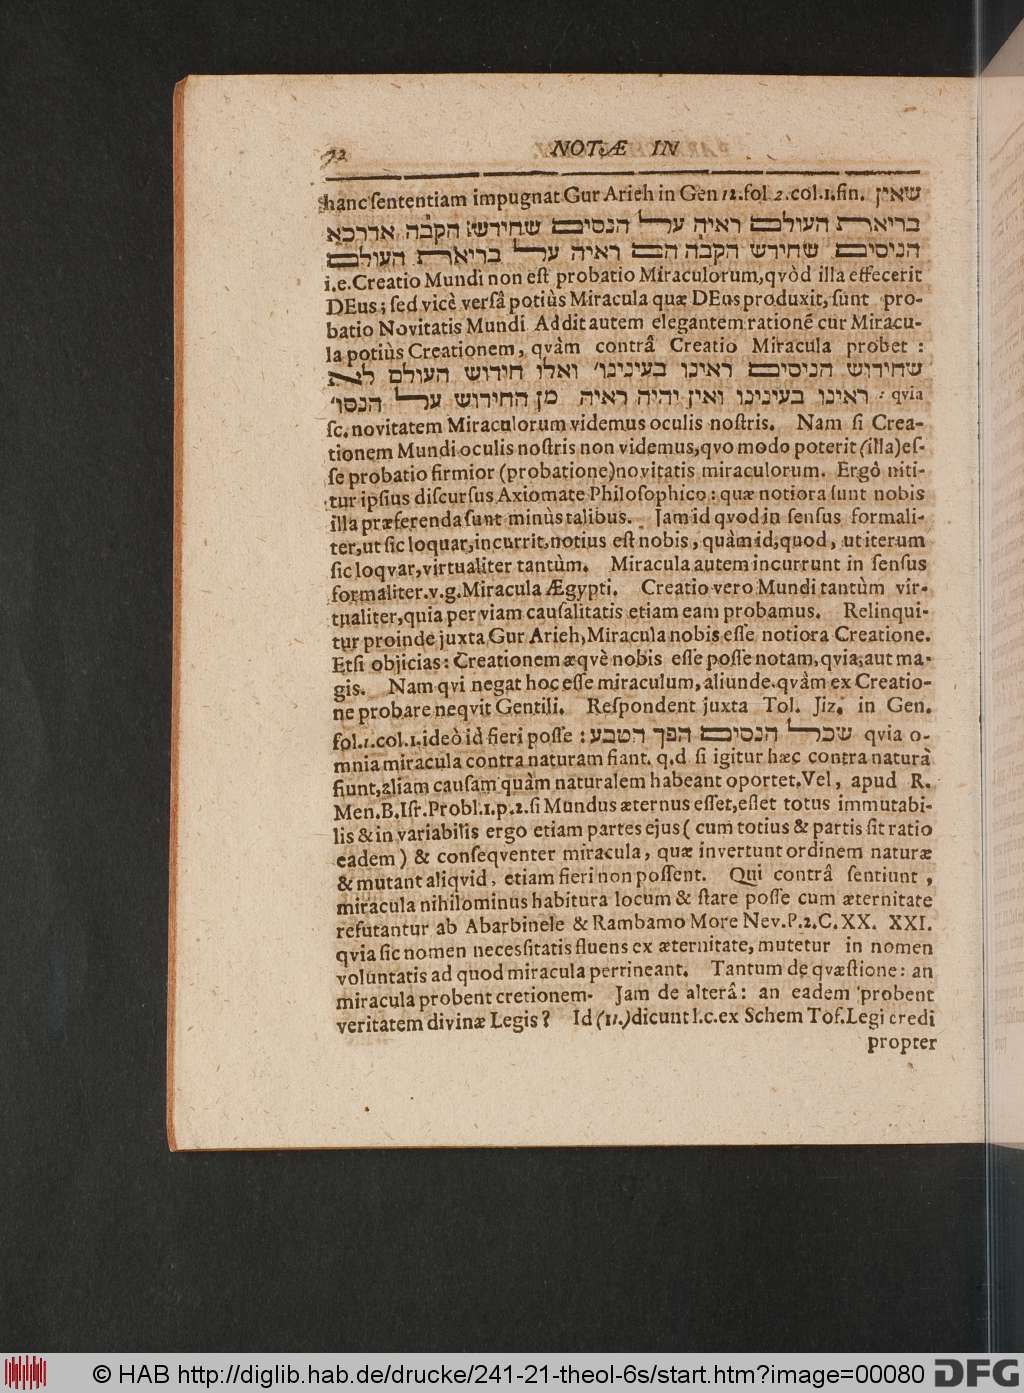 72 NOTÆ IN
hanc ſententiam impugnat Gur Arieh in Gen 12. fol 2. col. 1. fin. שאין
בריאת העולם ראיה על הנסים שחידש הקבה אדרבא
הניסים שחידש הקבה הם ראיה על בריאת העולם
i. e. Creatio Mundi non eſt probatio Miraculorum, qvòd illa effecerit
DEus; ſed vicè verſâ potiùs Miracula quæ DEus produxit, ſunt pro-
batio Novitatis Mundi Addit autem elegantem rationẽ cur Miracu-
la potiùs Creationem, qvàm contrâ Creatio Miracula probet :
שחידוש הניסים ראינו בעינינו׳ ואלו חידוש העולם לא
ראינו בעינינו ואין יהיה ראיה מן החידוש על הנסי׳ : qvia
ſc. novitatem Miraculorum videmus oculis noſtris. Nam ſi Crea-
tionem Mundi oculis noſtris non videmus, qvo modo poterit (illa) eſ-
ſe probatio firmior (probatione) novitatis miraculorum. Ergò niti-
tur ipſius diſcurſus Axiomate Philoſophico : quæ notiora ſunt nobis
illa præferenda ſunt minùs talibus. Jam id qvod in ſenſus formali-
ter, ut ſic loquar, incurrit, notius eſt nobis, quàm id, quod, ut iterum
ſic loqvar, virtualiter tantùm. Miracula autem incurrunt in ſenſus
formaliter. v. g. Miracula Ægypti. Creatio vero Mundi tantùm vir-
tualiter, quia per viam cauſalitatis etiam eam probamus. Relinqui-
tur proinde juxta Gur Arieh, Miracula nobis eſſe notiora Creatione.
Etſi objicias : Creationem æqvè nobis eſſe poſſe notam, qvia, aut ma-
gis. Nam qvi negat hoc eſſe miraculum, aliunde qvàm ex Creatio-
ne probare neqvit Gentili. Reſpondent juxta Tol. Jiz. in Gen.
fol. 1. col. 1. ideò id fieri poſſe : שכל הנסים הפך הטבע qvia o-
mnia miracula contra naturam fiant. q. d ſi igitur hæc contra naturà
fiunt, aliam cauſam quàm naturalem habeant oportet. Vel, apud R.
Men. B. Iſr. Probl. 1. p. 2. ſi Mundus æternus eſſet, eſſet totus immutabi-
lis & in variabilis ergo etiam partes ejus ( cum totius & partis ſit ratio
eadem ) & conſeqventer miracula, quæ invertunt ordinem naturæ
& mutant aliqvid, etiam fieri non poſſent. Qui contrâ ſentiunt,
miracula nihilominus habitura locum & ſtare poſſe cum æternitate
refutantur ab Abarbinele & Rambamo More Nev. P. 2. C. XX. XXI.
qvia ſic nomen neceſſitatis fluens ex æternitate, mutetur in nomen
voluntatis ad quod miracula pertineant. Tantum de qvæſtione : an
miracula probent cretionem. Jam de alterâ : an eadem probent
veritatem divinæ Legis ? Id (11.) dicunt l. c. ex Schem Tof. Legi credi
propter
© HAB http://diglib.hab.de/drucke/241-21-theol-6s/start.htm?image=00080 DFG